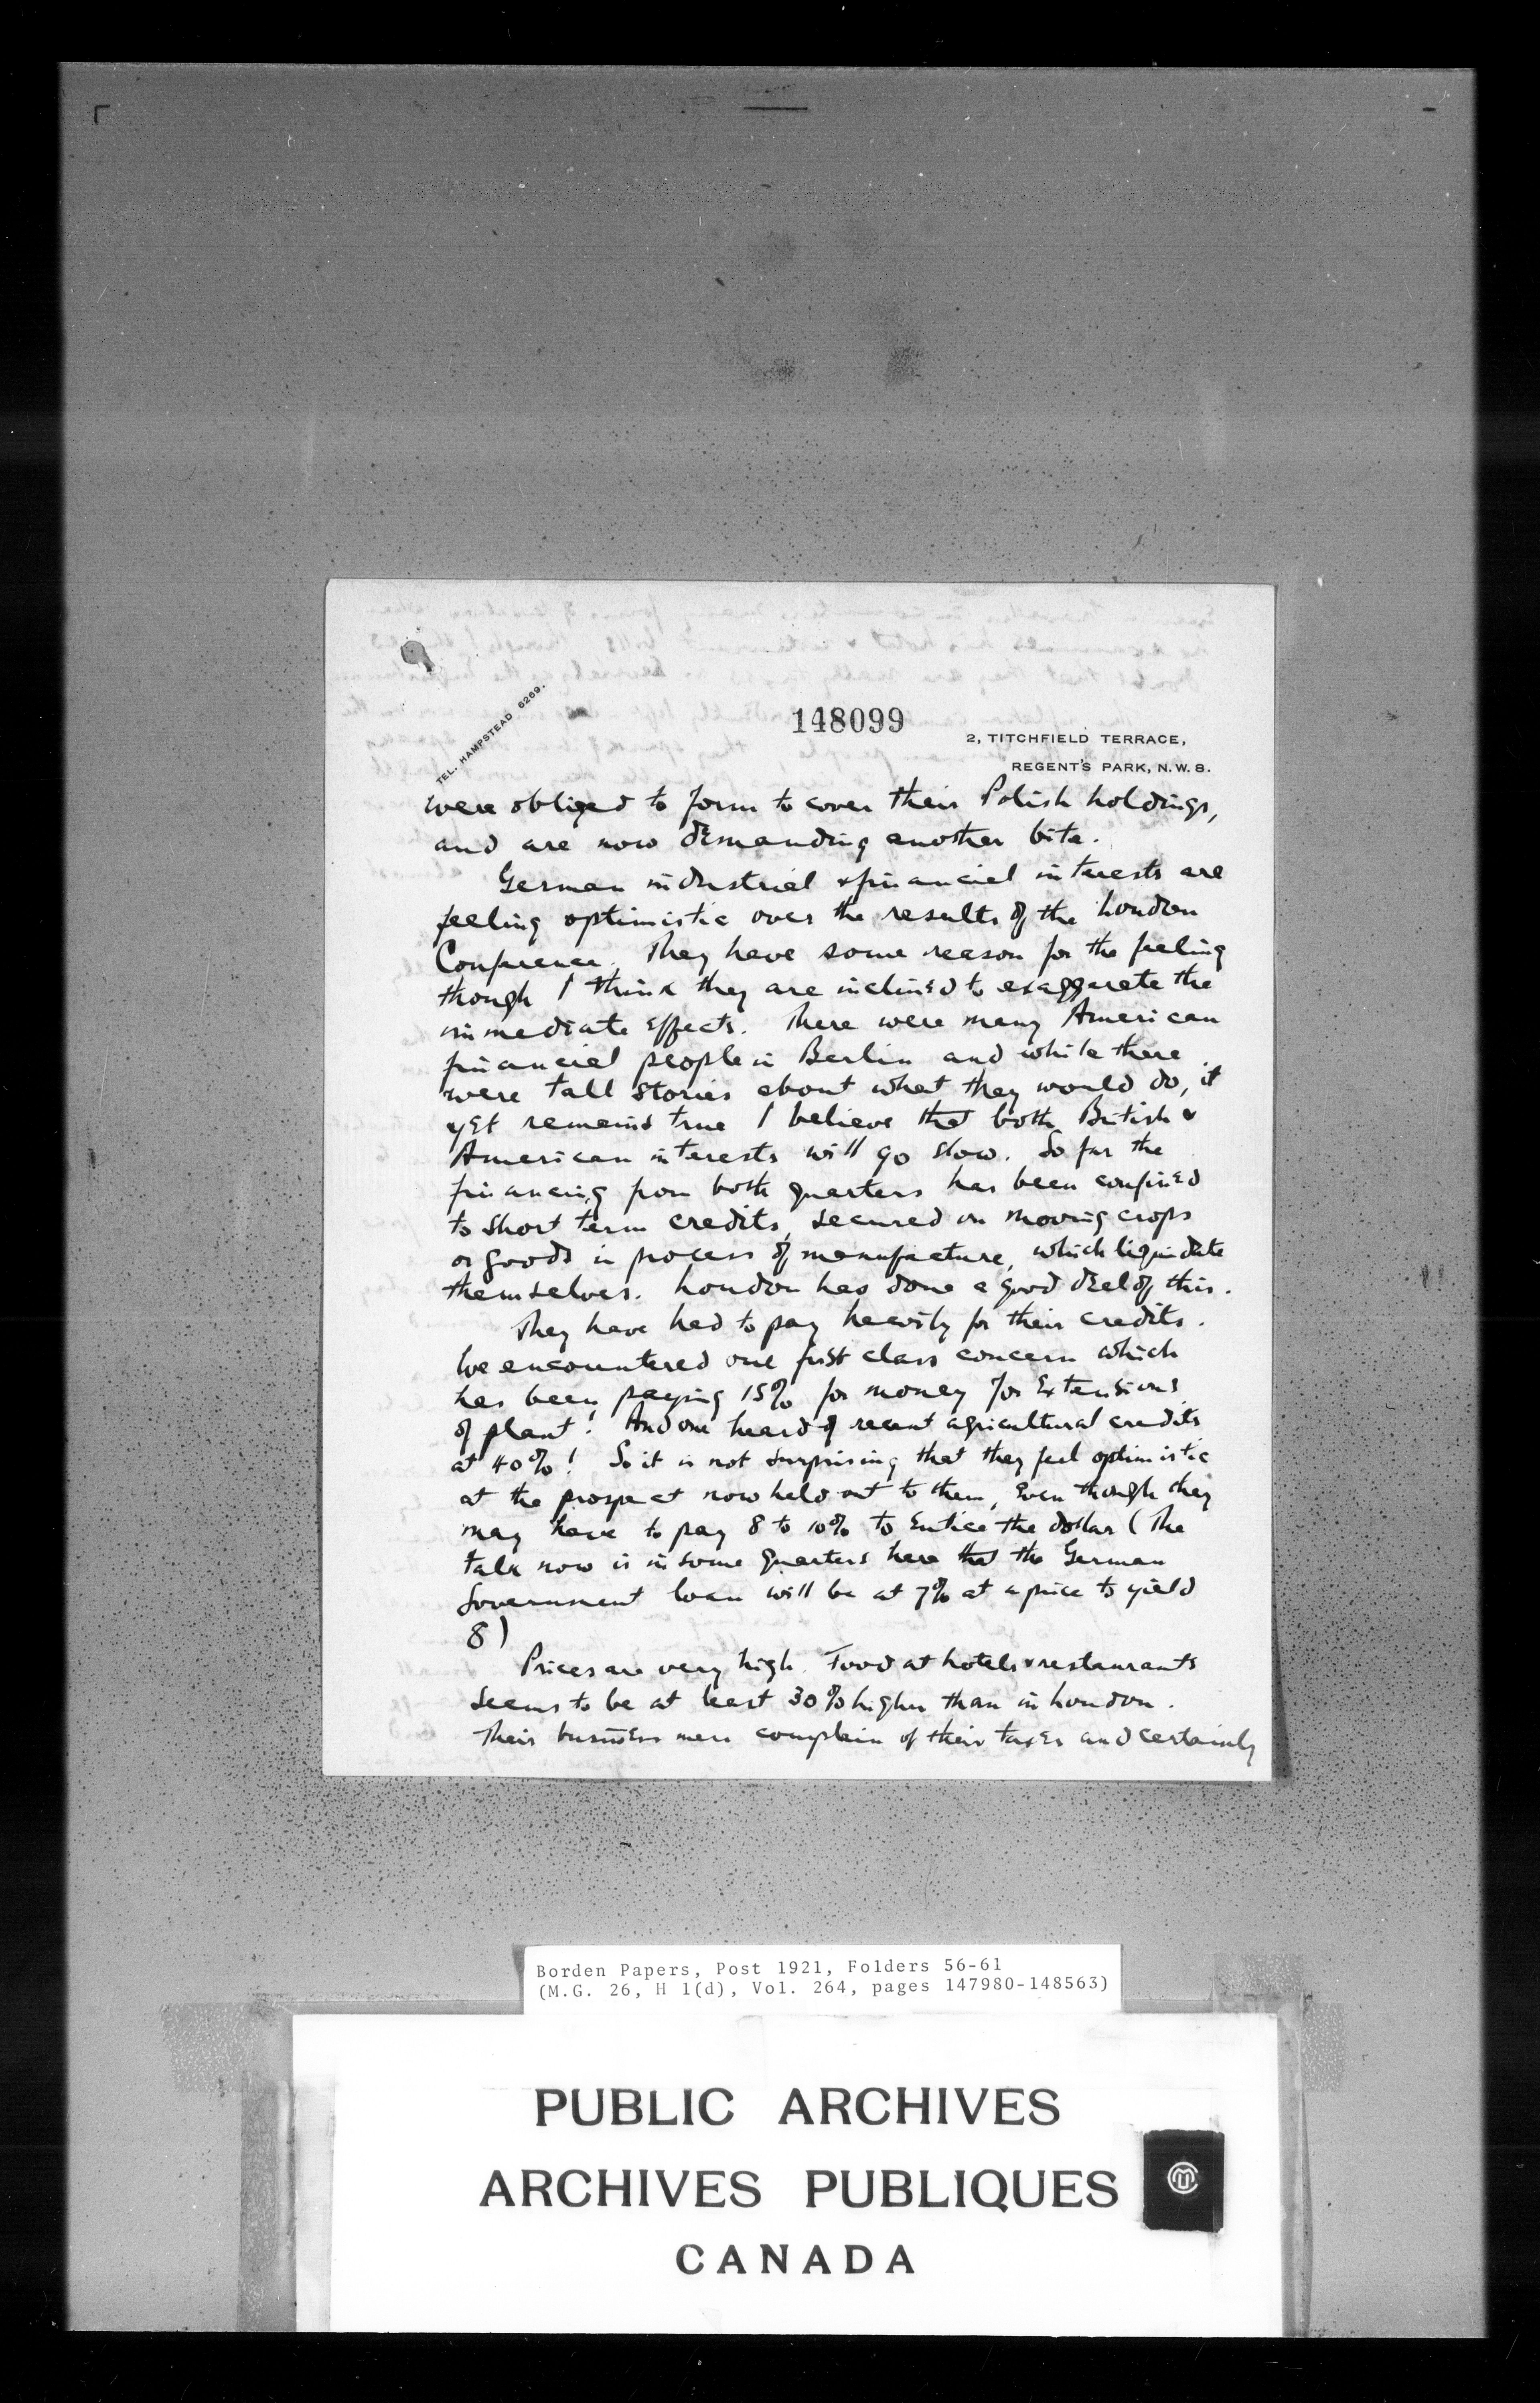 148099
TEL. HAMPSTEAD 6269.
2, TITCHFIELD TERRACE,
REGENT'S PARK, N.W.8.
were obliged to form to cover their Polish holdings,
and are now demanding another bite.
German industrial & financial interests are
feeling optimistic over the results of the London
Conference. They have some reason for the feeling
though I think they are inclined to exaggerate the
immediate effects. There were many American
financial people in Berlin and while there
were tall stories about what they would do, it
yet remains true I believe that both British &
American interests will go slow. So far the
financing from both quarters has been confined
to short term credits, secured on moving crops
or goods in process of manufacture, which liquidate
themselves. London has done a good deal of this.
They have had to pay heavily for their credits.
We encountered one first class concern which
has been paying 15% for money for extensions
of plant! And one heard of recent agricultural credits
at 40%! So it is not surprising that they feel optimistic
at the prospect now held out to them, even though they
may have to pay 8 to 10% to entice the dollar (The
talk now is in some quarters here that the German
Government loan will be at 7% at a price to yield
8)
Prices are very high. Food at hotels & restaurants
seems to be at least 30% higher than in London.
Their business men complain of their taxes and certainly
Borden Papers, Post 1921, Folders 56-61
(M.G. 26, H 1(d), Vol. 264, pages 147980-148563)
PUBLIC ARCHIVES
ARCHIVES PUBLIQUES
CANADA